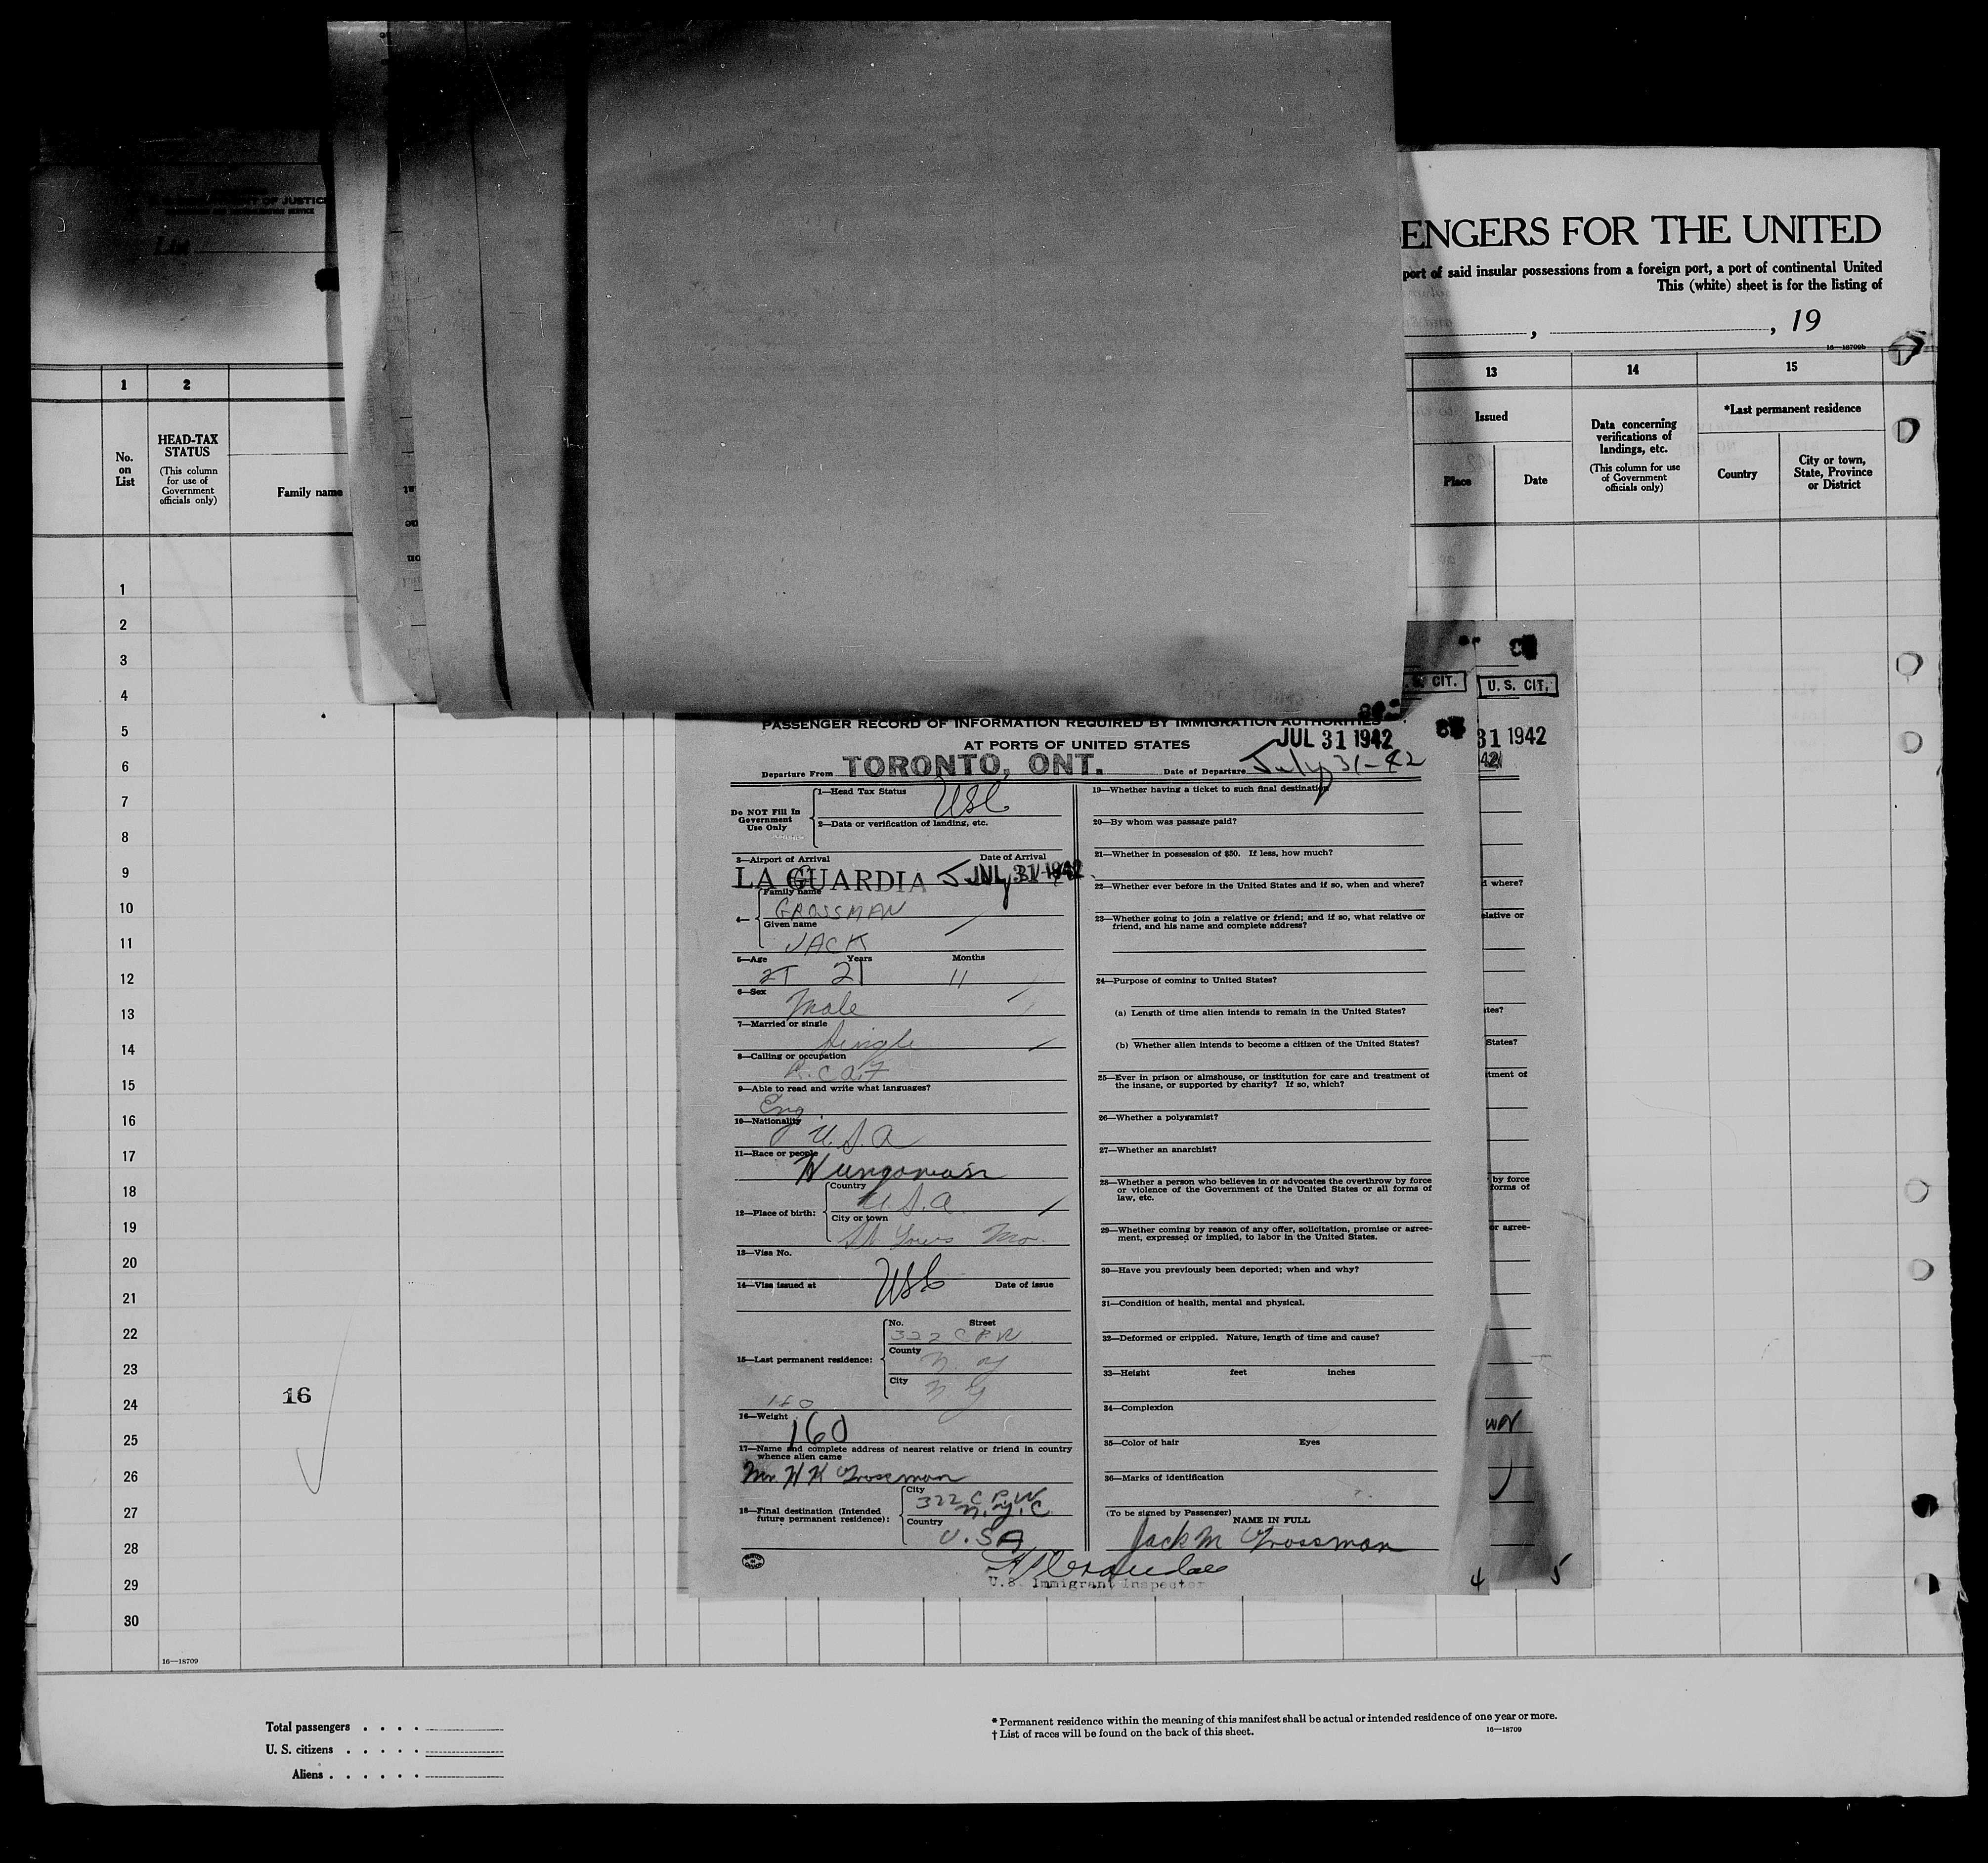 T OF JUSTIC
List
ENGERS FOR THE UNITED
port of said insular possessions from a foreign port, a port of continental United
This (white) sheet is for the listing of
, , 19
16—18709b
1 2 13 14 15
No. on List
HEAD-TAX STATUS
(This column for use of Government officials only)
Family name
Issued
Place
Date
Data concerning verifications of landings, etc.
(This column for use of Government officials only)
*Last permanent residence
Country
City or town, State, Province or District
1
2
3
4
5
6
7
8
9
10
11
12
13
14
15
16
17
18
19
20
21
22
23
24
25
26
27
28
29
30
16
16—18709
CIT.
U. S. CIT.
31 1942
PASSENGER RECORD OF INFORMATION REQUIRED BY IMMIGRATION AUTHORITIES
AT PORTS OF UNITED STATES
JUL 31 1942
Departure From TORONTO, ONT.
Date of Departure July 31-42
Do NOT Fill In Government Use Only
1—Head Tax Status USC
2—Data or verification of landing, etc.
3—Airport of Arrival
Date of Arrival
LA GUARDIA JUL 31 1942
4—
Family name
GROSSMAN
Given name
JACK
5—Age Years Months
21 21 11
6—Sex
Male
7—Married or single
Single
8—Calling or occupation
R.C.A.F
9—Able to read and write what languages?
Eng
10—Nationality
U.S.A
11—Race or people
Hungarian
12—Place of birth:
Country
U.S.A.
City or town
St Louis Mo.
13—Visa No.
14—Visa issued at USC Date of issue
15—Last permanent residence:
No. Street
322 C.P.W.
County
N. Y
City
N. Y
160
16—Weight
160
17—Name and complete address of nearest relative or friend in country
whence alien came
H K Grossman
18—Final destination (Intended
future permanent residence):
City
322 C P W
N.Y.C.
Country
U.S.A
U.S. Immigrant Inspector
19—Whether having a ticket to such final destination
20—By whom was passage paid?
21—Whether in possession of $50. If less, how much?
22—Whether ever before in the United States and if so, when and where?
23—Whether going to join a relative or friend; and if so, what relative or
friend, and his name and complete address?
24—Purpose of coming to United States?
(a) Length of time alien intends to remain in the United States?
(b) Whether alien intends to become a citizen of the United States?
25—Ever in prison or almshouse, or institution for care and treatment of
the insane, or supported by charity? If so, which?
26—Whether a polygamist?
27—Whether an anarchist?
28—Whether a person who believes in or advocates the overthrow by force
or violence of the Government of the United States or all forms of
law, etc.
29—Whether coming by reason of any offer, solicitation, promise or agree-
ment, expressed or implied, to labor in the United States.
30—Have you previously been deported; when and why?
31—Condition of health, mental and physical.
32—Deformed or crippled. Nature, length of time and cause?
33—Height feet inches
34—Complexion
35—Color of hair Eyes
36—Marks of identification
(To be signed by Passenger)
NAME IN FULL
Jack M Grossman
4
5
d where?
elative or
ates?
States?
tment of
by force
forms of
or agree-
Total passengers . . . .
U. S. citizens . . . . .
Aliens . . . . . .
* Permanent residence within the meaning of this manifest shall be actual or intended residence of one year or more.
† List of races will be found on the back of this sheet.
16—18709